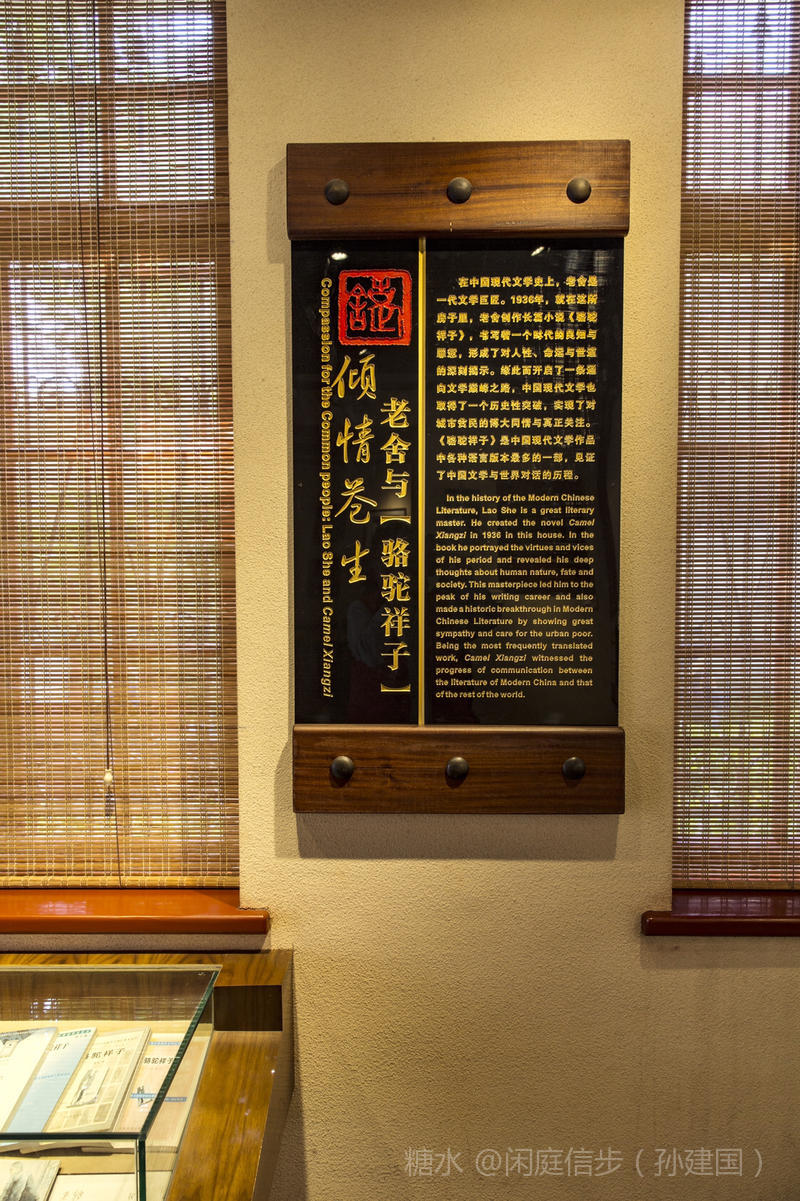 倾情苍生
老舍与【骆驼祥子】
Compassion for the Common people: Lao She and Camel Xiangzi
在中国现代文学史上，老舍是
一代文学巨匠。1936年，就在这所
房子里，老舍创作长篇小说《骆驼
祥子》，书写着一个时代的良知与
罪愆，形成了对人性、命运与世道
的深刻揭示。缘此而开启了一条通
向文学巅峰之路，中国现代文学也
取得了一个历史性突破，实现了对
城市贫民的博大同情与真正关注。
《骆驼祥子》是中国现代文学作品
中各种语言版本最多的一部，见证
了中国文学与世界对话的历程。
In the history of the Modern Chinese
Literature, Lao She is a great literary
master. He created the novel Camel
Xiangzi in 1936 in this house. In the
book he portrayed the virtues and vices
of his period and revealed his deep
thoughts about human nature, fate and
society. This masterpiece led him to the
peak of his writing career and also
made a historic breakthrough in Modern
Chinese Literature by showing great
sympathy and care for the urban poor.
Being the most frequently translated
work, Camel Xiangzi witnessed the
progress of communication between
the literature of Modern China and that
of the rest of the world.
骆驼祥子
骆驼祥子
糖水 @闲庭信步（孙建国）